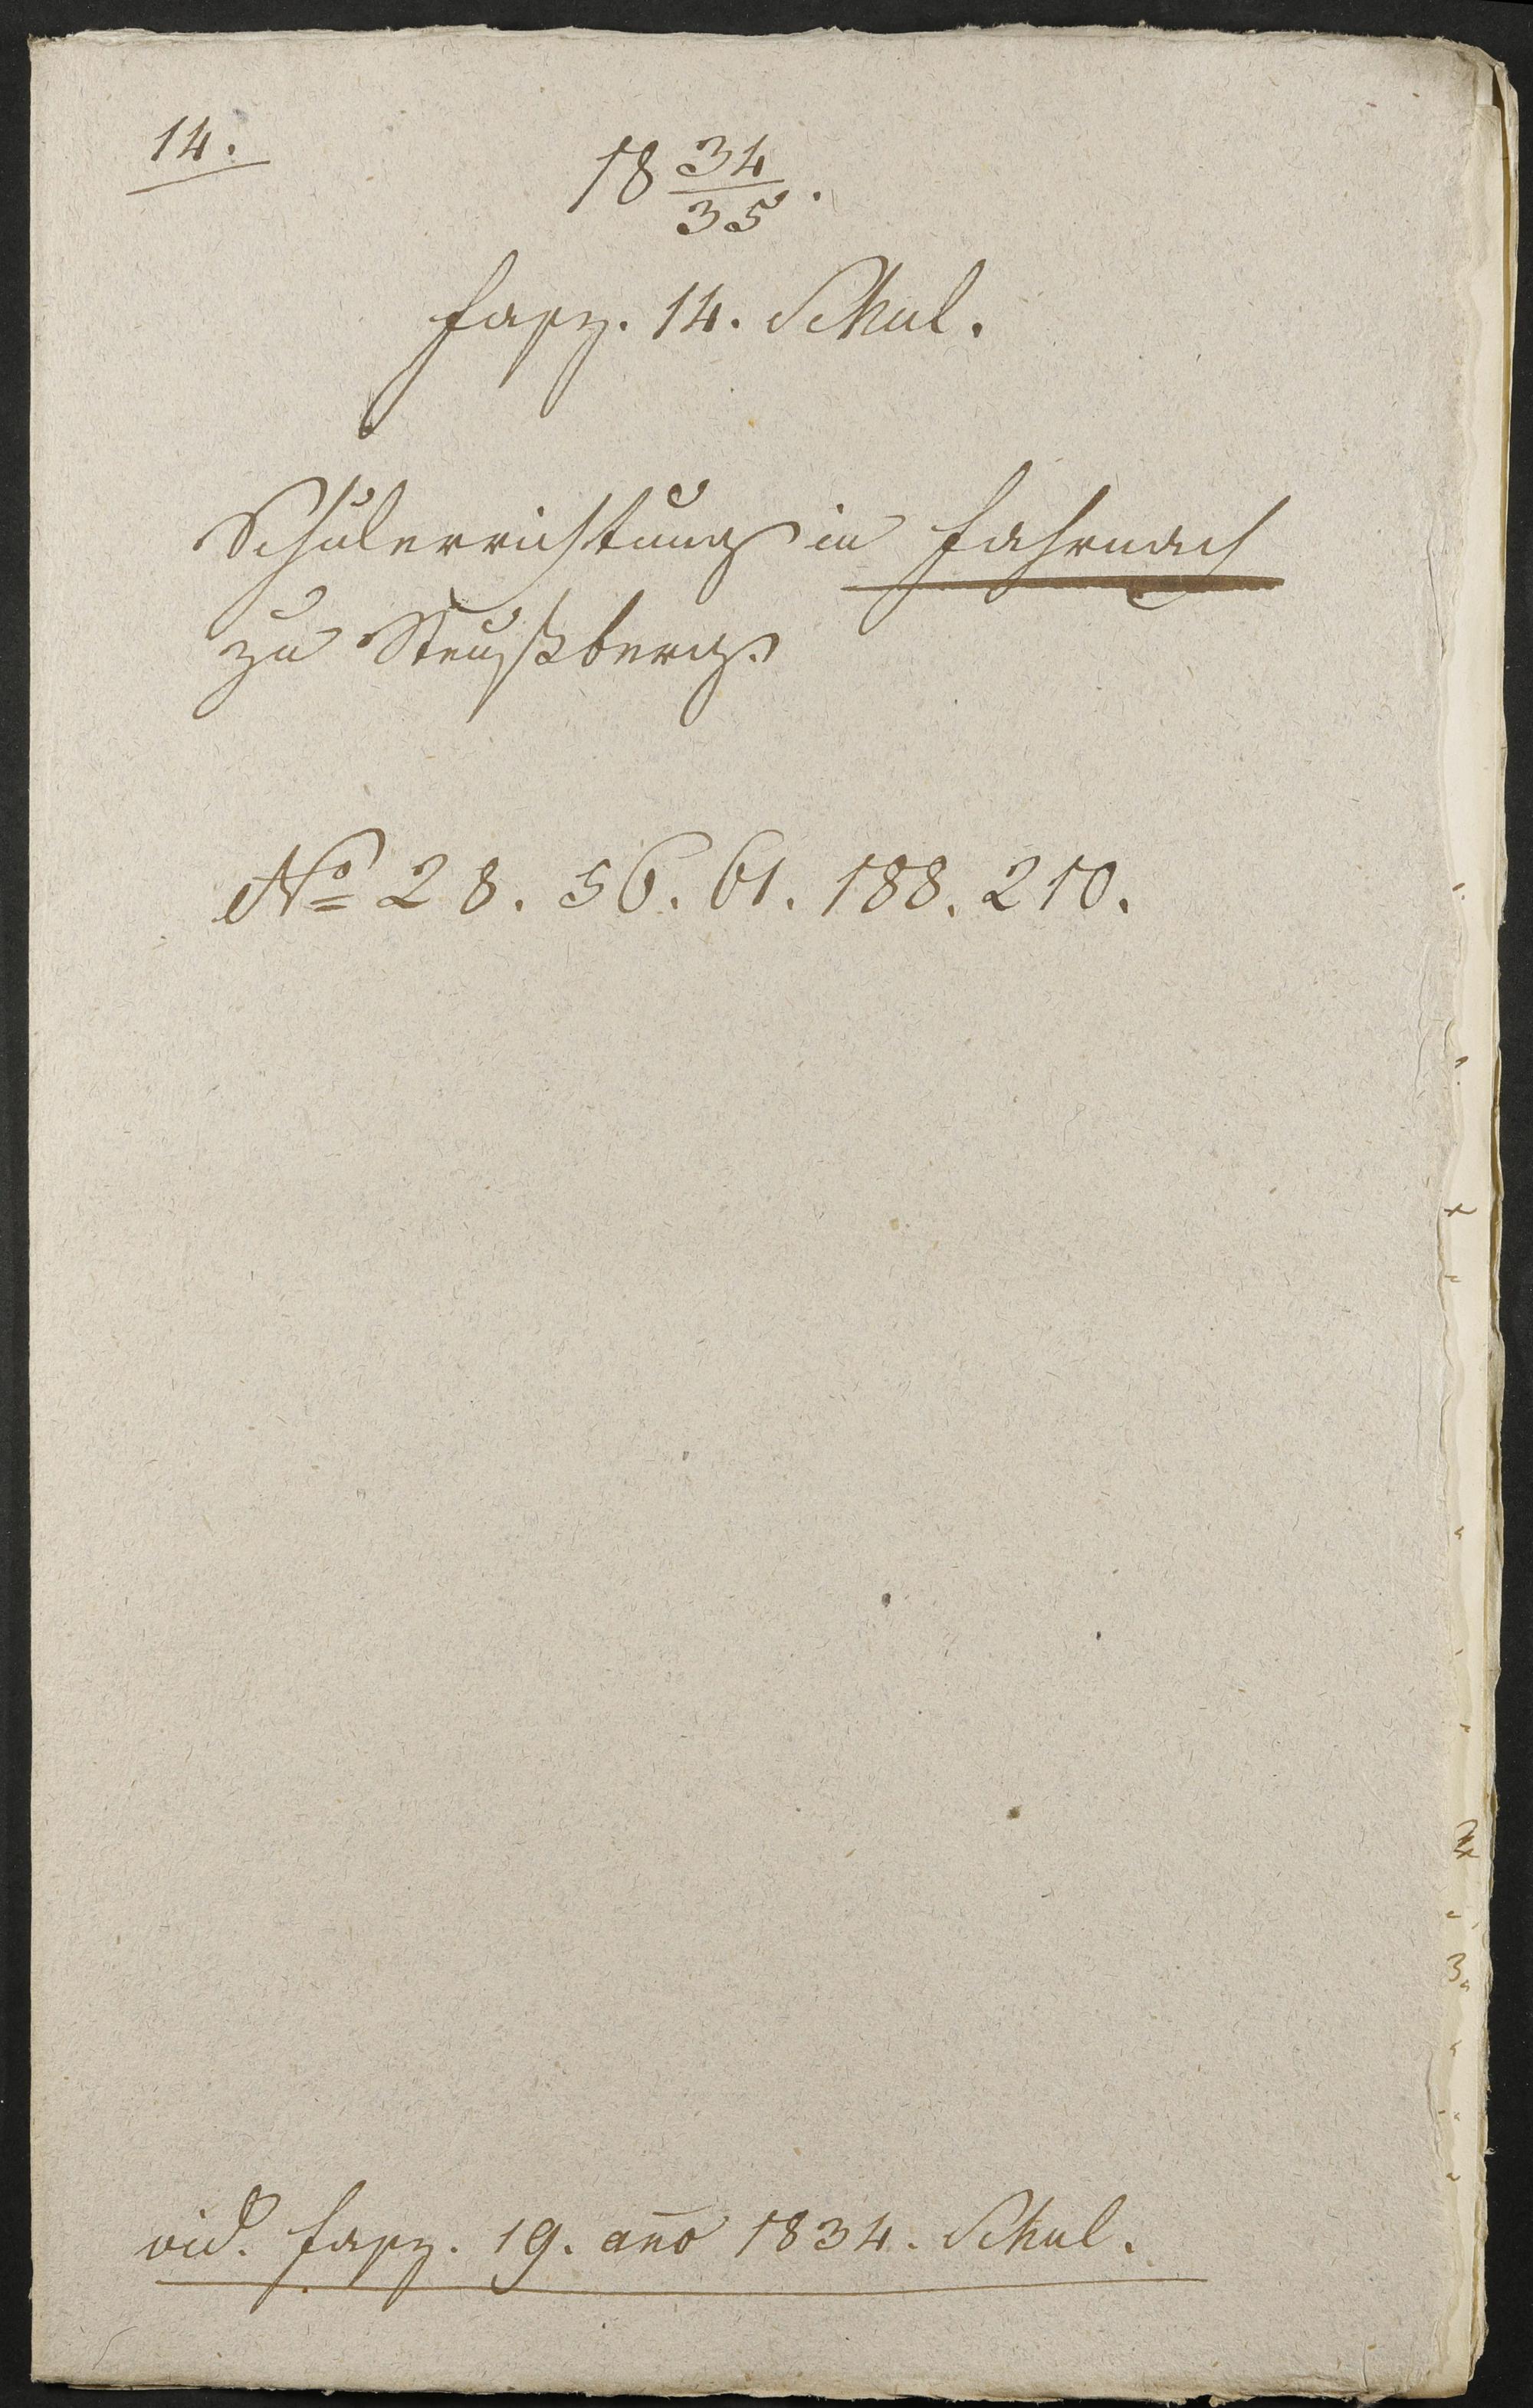 14.
18 34/35.
Fasz. 14. Schul.
Schulerrichtung in Fahrnach
zu Steußberg.
No 28. 56. 61. 188. 210.
vid. Fasz. 19. ano 1834. Schul.